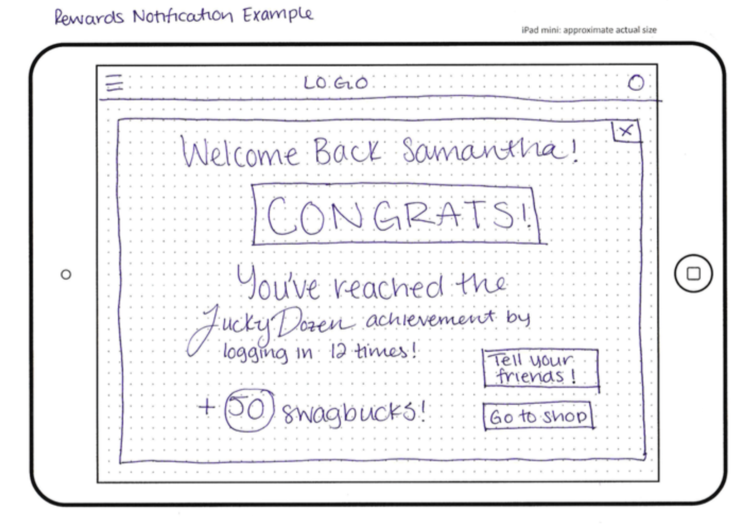 Rewards Notification Example
iPad mini: approximate actual size
LOGO
X
Welcome Back Samantha!
CONGRATS!
You've reached the
Lucky Dozen achievement by
logging in 12 times!
Tell your
friends!
+ 50 swagbucks!
Go to shop